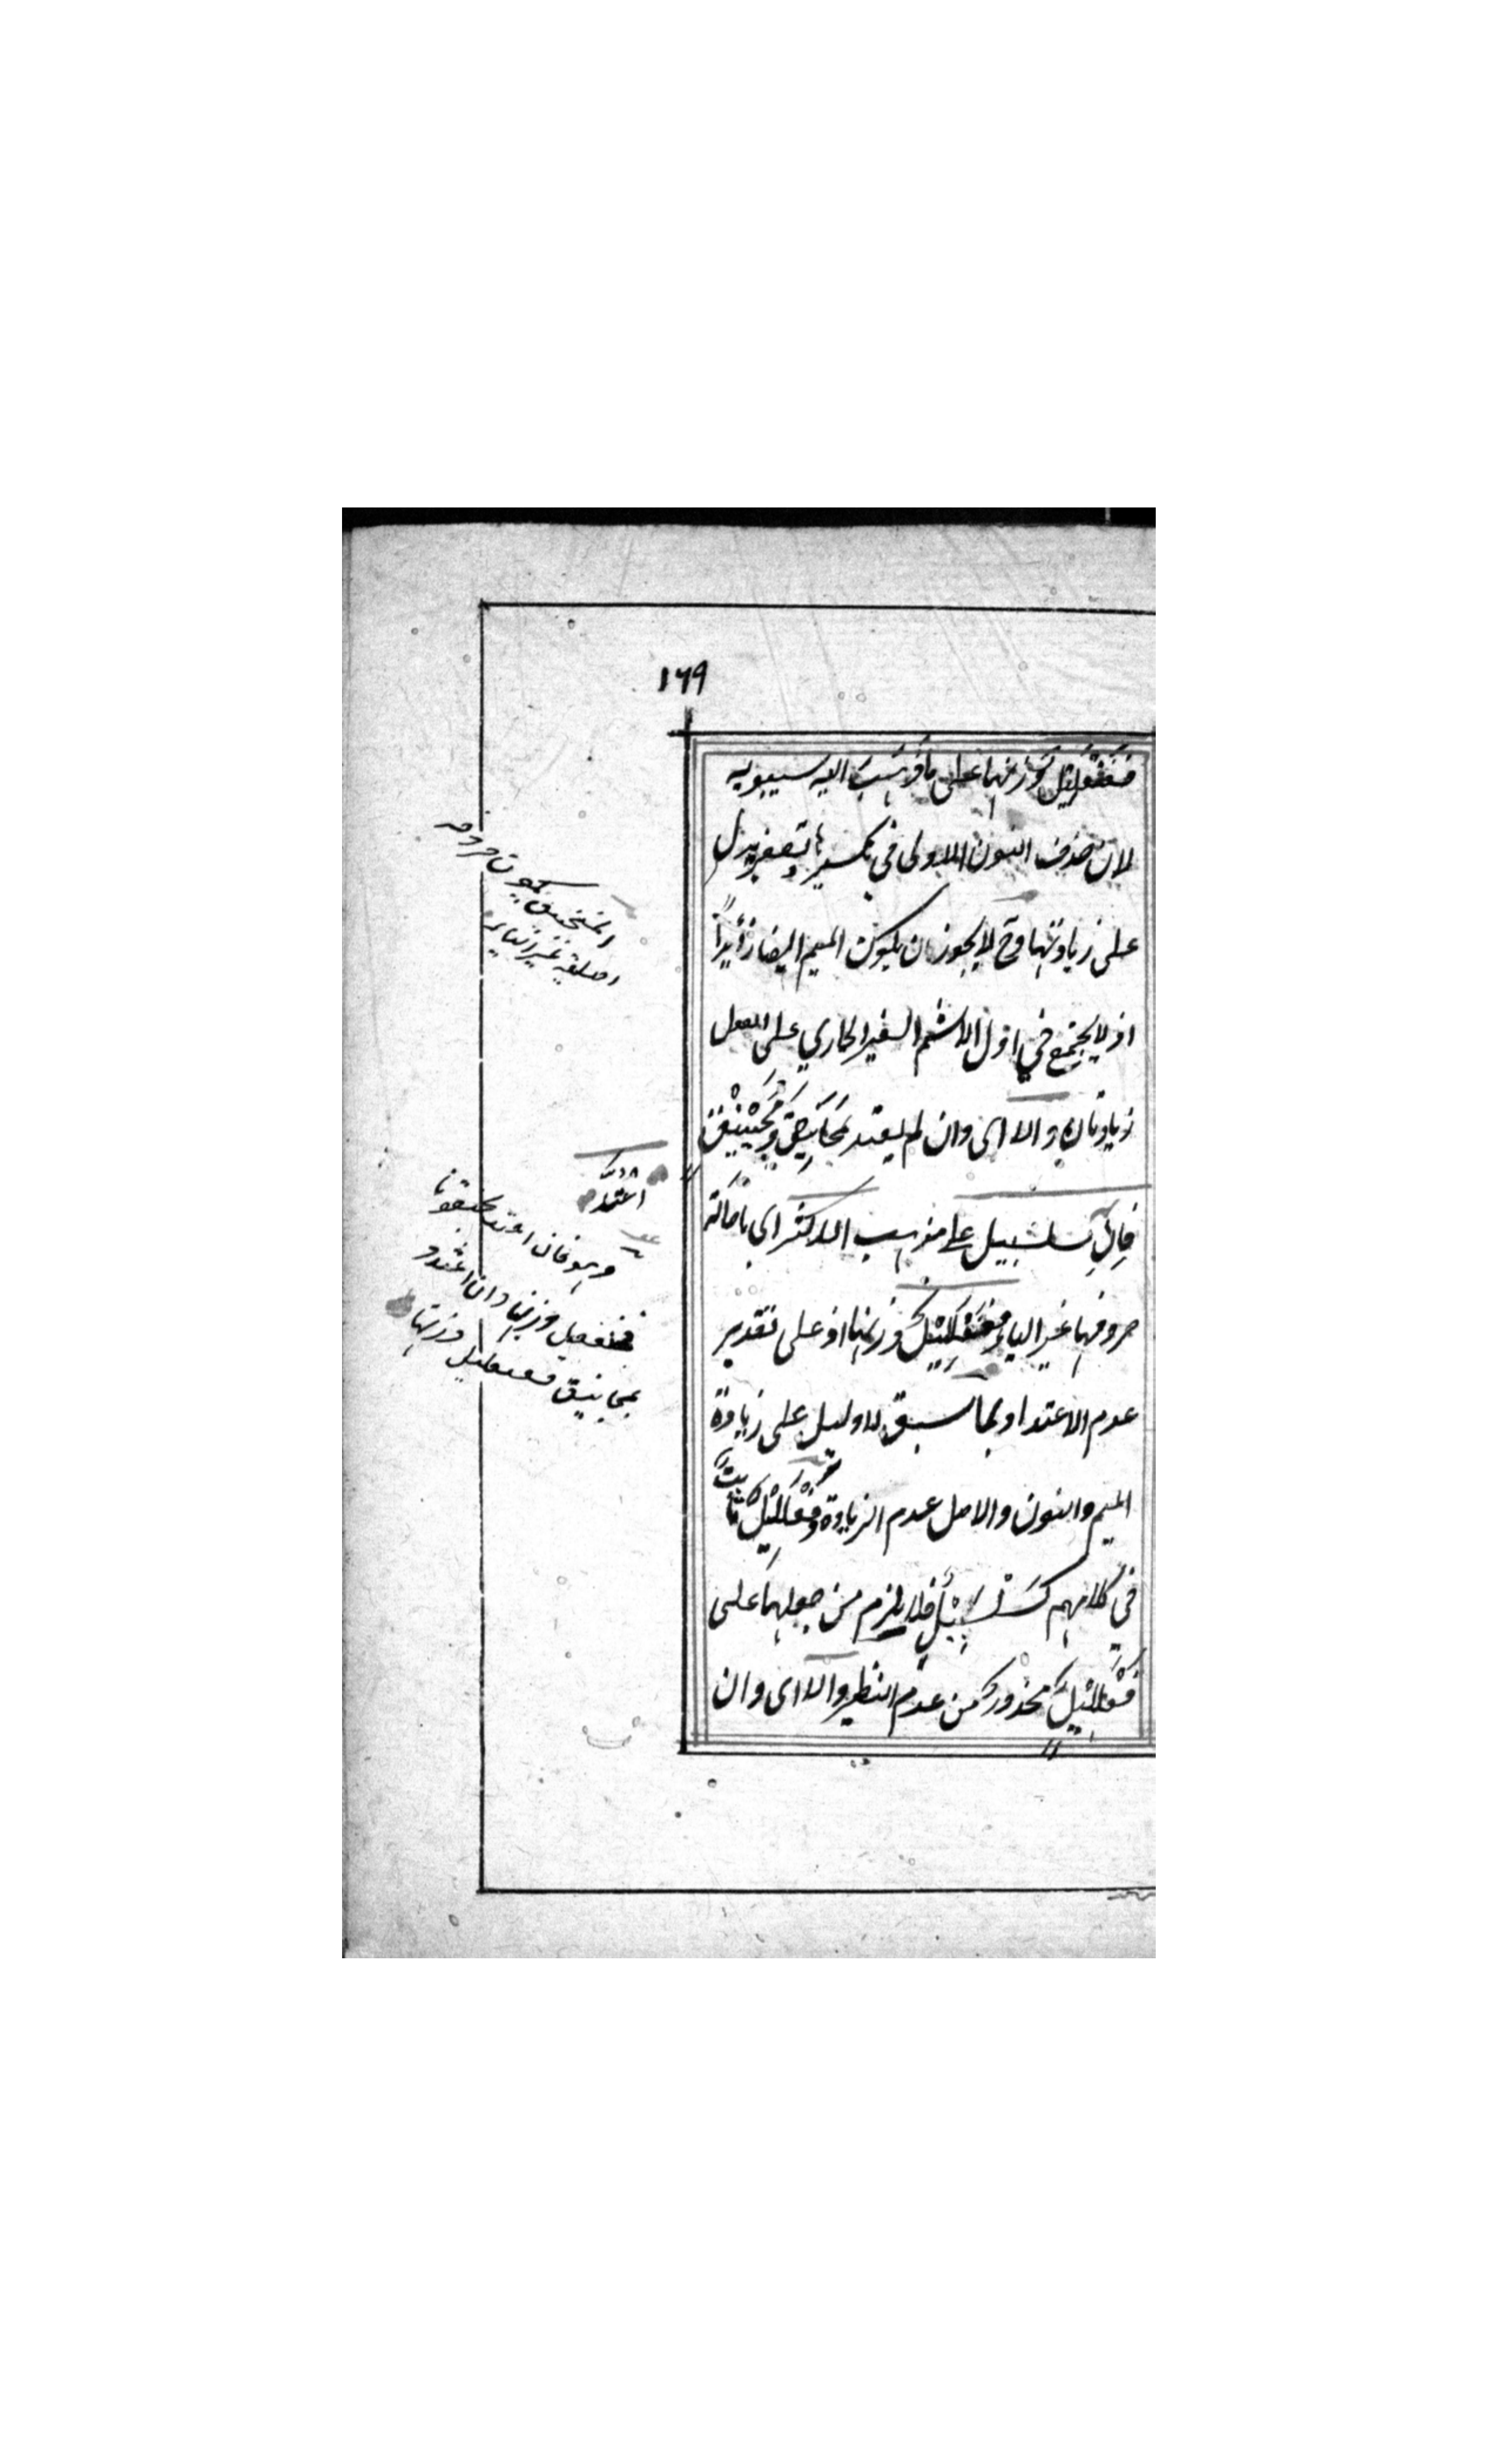 ١٦٩
فَنْعَلِيْل وزنهما على ما ذهب اليه سيبويه
لان حذف النون الاولى في تكسيرها وتصغيرها يدل
على زيادتها وح لا يجوز ان يكون الميم ايضا زائداً
اذ لا يجتمع في اول الاسم الغير الجاري على الفعل
زيادتان والا اى وان لم يعتد بمَجَانِيقَ ومُجَيْنِيْق
فان سلسبيل على مذهب الاكثر اى باصالة
حروفها غير الياء فَفَعْلَلِيْل وزنها اذ على تقدير
عدم الاعتداد بما سبق لا دليل على زيادة
الميم والنون والاصل عدم الزيادة وفَعْلَلِيْل ثابت
في كلامهم كسَلْسَبِيْل فلا يلزم من جعلها على
فَعْلَلِيْل محذور من عدم النظير والا اى وان
المنجنيق يكون حروفه
اصلية غير الياء
اعتد
وهو فان اعتد بجنقونا
فمنفعيل وزنها وان اعتد
بمجانيق ففنعليل وزنها